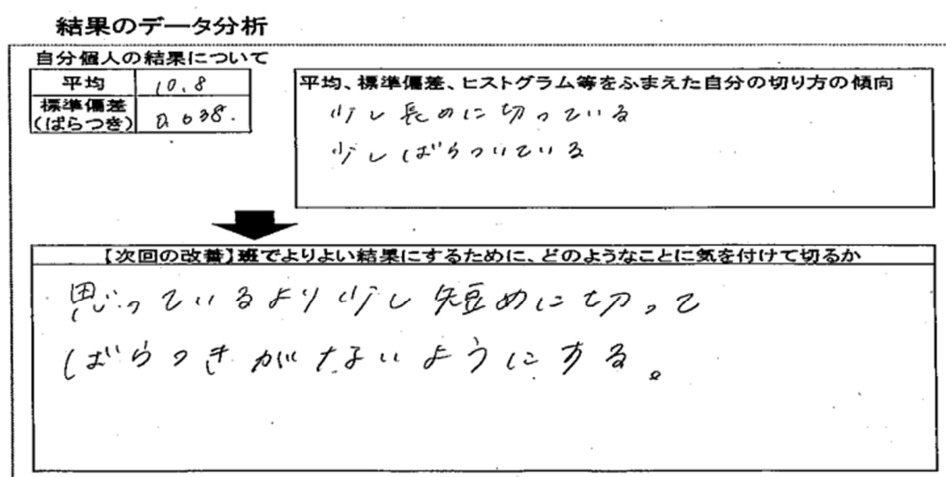 結果のデータ分析
自分個人の結果について
平均 10.8
標準偏差
(ばらつき) 0.038.
平均、標準偏差、ヒストグラム等をふまえた自分の切り方の傾向
少し長めに切っている
少しばらついている
【次回の改善】班でよりよい結果にするために、どのようなことに気を付けて切るか
思っているより少し短めに切って
ばらつきがないようにする。